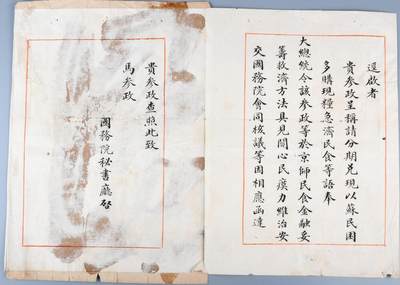 逕啟者
貴參政呈稱請分期兌現以蘇民困
多購現糧急濟民食等語奉
大總統令該參政等於京師民食金融妥
籌救濟方法具見關心民瘼力維治安
交國務院會同核議等因相應函達
貴參政查照此致
馬參政
國務院秘書廳啓